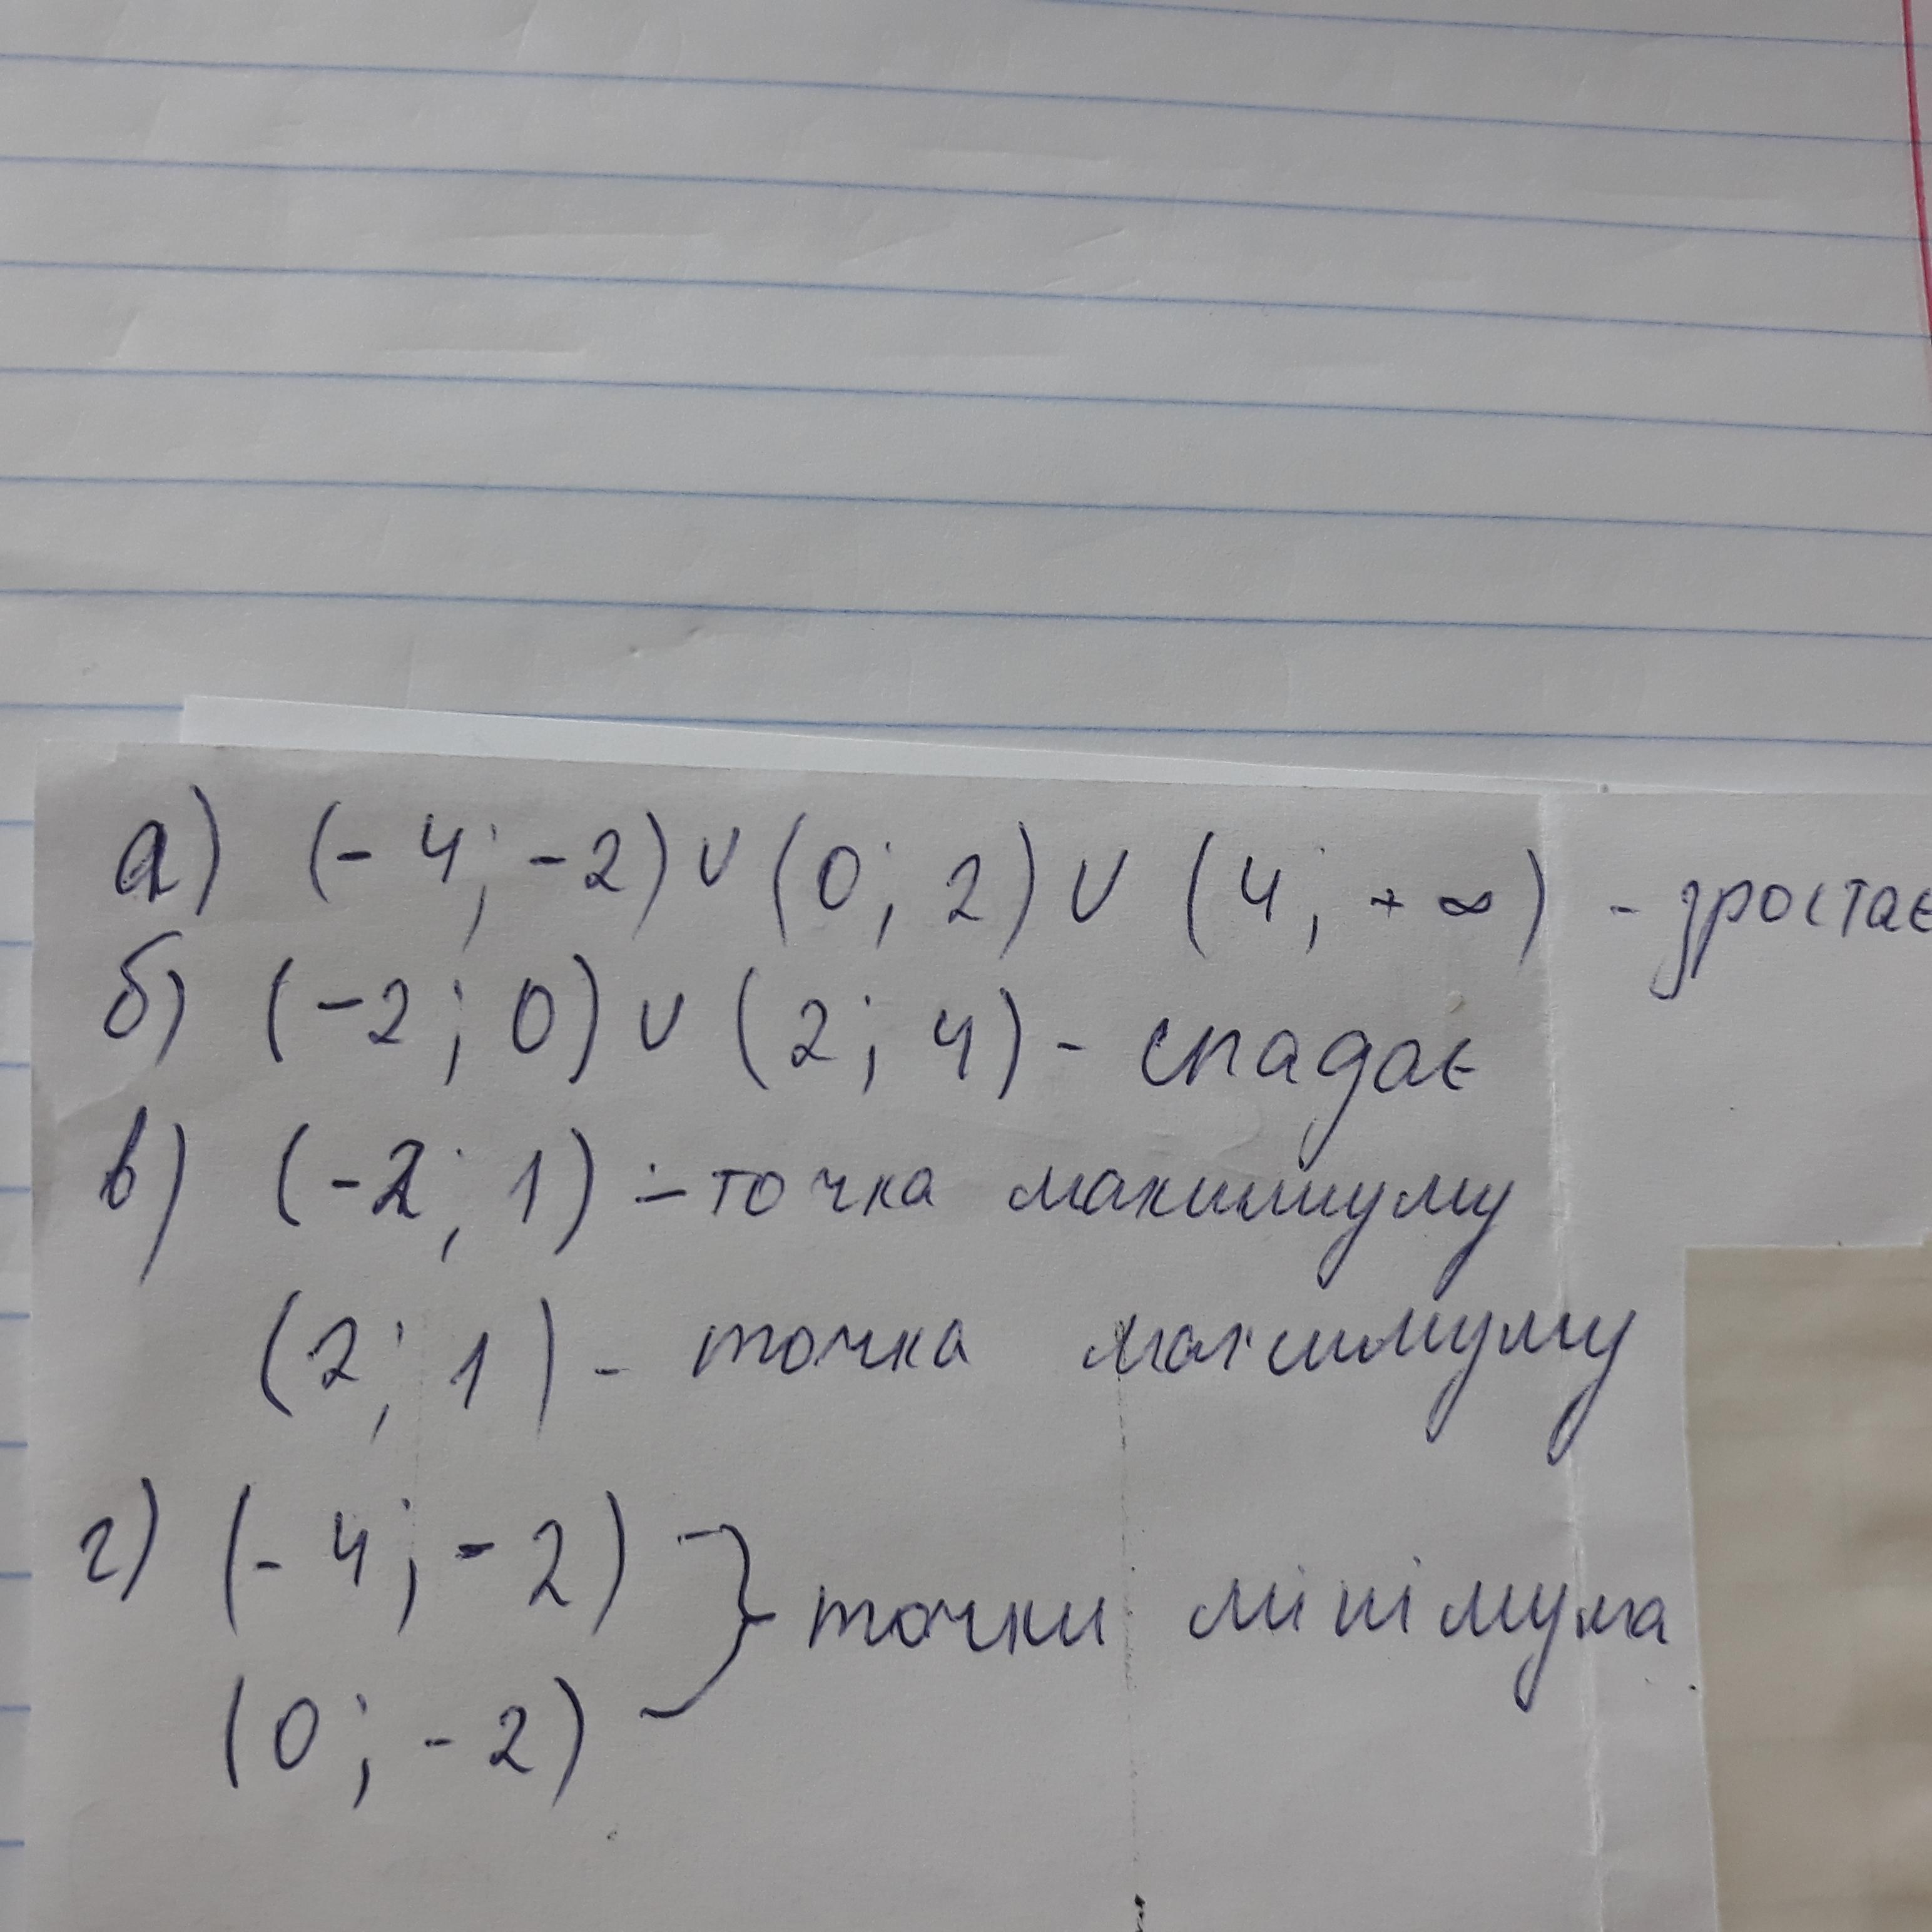 а) (-4; -2) ∪ (0; 2) ∪ (4; +∞) - зростає
б) (-2; 0) ∪ (2; 4) - спадає
в) (-2; 1) - точка максимуму
(2; 1) - точка максимуму
г) (-4; -2)
} точки мінімума
(0; -2)